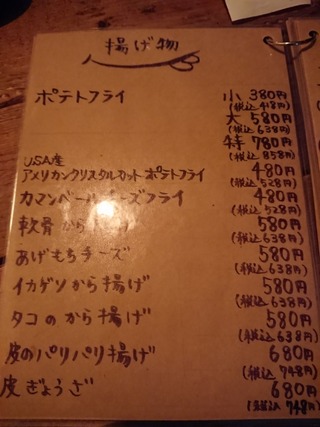 揚げ物
ポテトフライ 小 380円
(税込418円)
大 580円
(税込638円)
特 780円
(税込858円)
USA産
アメリカンクリスタルカットポテトフライ 480円
(税込528円)
カマンベールチーズフライ 480円
(税込528円)
軟骨から揚げ 580円
(税込638円)
あげもちチーズ 580円
(税込638円)
イカゲソから揚げ 580円
(税込638円)
タコのから揚げ 580円
(税込638円)
皮のパリパリ揚げ 680円
(税込748円)
皮ぎょうざ 680円
(税込748円)